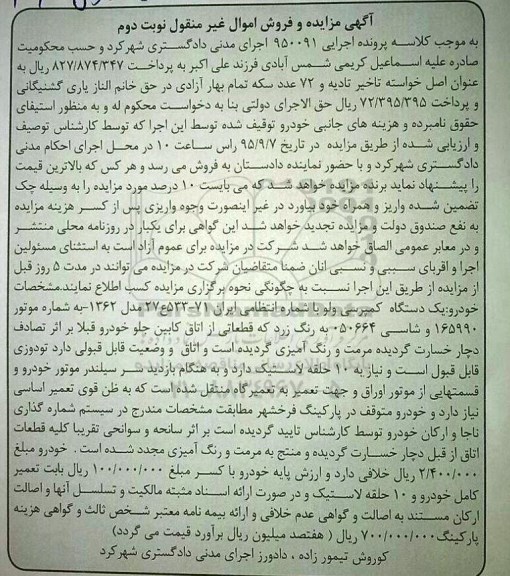 آگهی مزایده و فروش اموال غیر منقول نوبت دوم
به موجب کلاسه پرونده اجرایی ۹۵۰۰۹۱ اجرای مدنی دادگستری شهرکرد و حسب محکومیت
صادره علیه اسماعیل کریمی شمس آبادی فرزند علی اکبر به پرداخت ۸۲۷/۸۷۴/۳۴۷ ریال به
عنوان اصل خواسته تاخیر تادیه و ۷۲ عدد سکه تمام بهار آزادی در حق خانم الناز یاری گشنیگانی
و پرداخت ۷۲/۳۹۵/۳۹۵ ریال حق الاجرای دولتی بنا به دخواست محکوم له و به منظور استیفای
حقوق نامبرده و هزینه های جانبی خودرو توقیف شده توسط این اجرا که توسط کارشناس توصیف
و ارزیابی شده از طریق مزایده در تاریخ ۹۵/۹/۷ راس ساعت ۱۰ در محل اجرای احکام مدنی
دادگستری شهرکرد و با حضور نماینده دادستان به فروش می رسد و هر کس که بالاترین قیمت
را پیشنهاد نماید برنده مزایده خواهد شد که می بایست ۱۰ درصد مورد مزایده را به وسیله چک
تضمین شده واریز و همراه خود بیاورد در غیر اینصورت وجوه واریزی پس از کسر هزینه مزایده
به نفع صندوق دولت و مزایده تجدید خواهد شد این گواهی برای یکبار در روزنامه محلی منتشر
و در معابر عمومی الصاق خواهد شد شرکت در مزایده برای عموم آزاد است به استثنای مسئولین
اجرا و اقربای سببی و نسبی انان ضمنا متقاضیان شرکت در مزایده می توانند در مدت ۵ روز قبل
از مزایده از طریق این اجرا نسبت به چگونگی نحوه برگزاری مزایده کسب اطلاع نمایند.مشخصات
خودرو:یک دستگاه کمپرسی ولو با شماره انتظامی ایران ۷۱-۵۳۳ع۲۷ مدل ۱۳۶۲-به شماره موتور
۱۶۵۹۹۰ و شاسی ۰۵۰۶۶۴ به رنگ زرد که قطعاتی از اتاق کابین جلو خودرو قبلا بر اثر تصادف
دچار خسارت گردیده مرمت و رنگ آمیزی گردیده است و اتاق و وضعیت قابل قبولی دارد تودوزی
قابل قبول است و نیاز به ۱۰ حلقه لاستیک دارد و به هنگام بازدید سر سیلندر موتور خودرو و
قسمتهایی از موتور اوراق و جهت تعمیر به تعمیر گاه منتقل شده است که به ظن قوی تعمیر اساسی
نیاز دارد و خودرو متوقف در پارکینگ فرخشهر مطابقت مشخصات مندرج در سیستم شماره گذاری
ناجا و ارکان خودرو توسط کارشناس تایید گردیده است بر اثر سانحه و سوانحی تقریبا کلیه قطعات
اتاق از قبل دچار خسارت گردیده و منتج به مرمت و رنگ آمیزی مجدد شده است . خودرو مبلغ
۲/۴۰۰/۰۰۰ ریال خلافی دارد و ارزش پایه خودرو با کسر مبلغ ۱۰۰/۰۰۰/۰۰۰ ریال بابت تعمیر
کامل خودرو و ۱۰ حلقه لاستیک و در صورت ارائه اسناد مثبته مالکیت و تسلسل آنها و اصالت
ارکان مستند به اصالت و گواهی عدم خلافی و ارائه بیمه نامه معتبر شخص ثالث و گواهی هزینه
پارکینگ ۷۰۰/۰۰۰/۰۰۰ ریال ( هفتصد میلیون ریال برآورد قیمت می گردد)
کوروش تیمور زاده . دادورز اجرای مدنی دادگستری شهرکرد